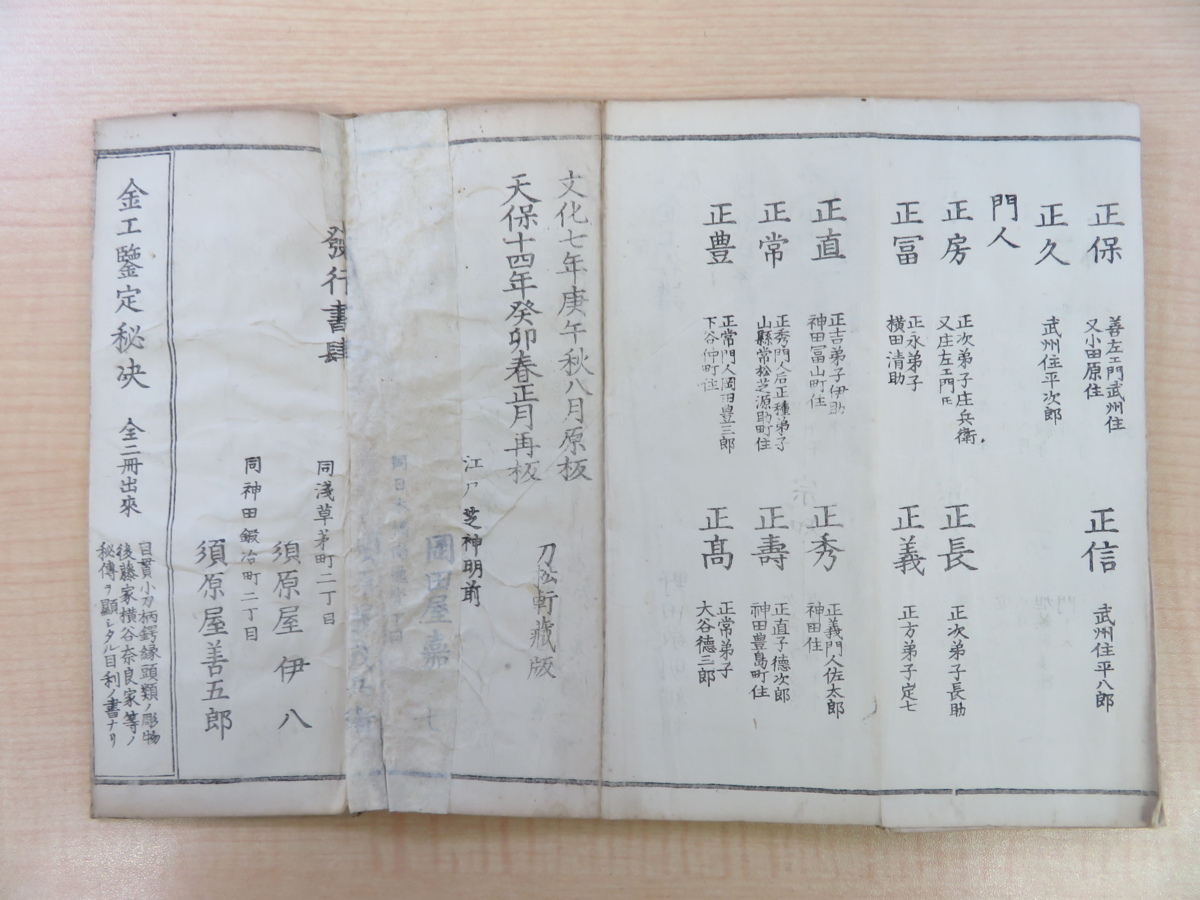 正保
善左エ門武州住
又小田原住
正信
武州住平八郎
正久
武州住平次郎
門人
正房
正次弟子庄兵衛
又庄左エ門氏
正長
正次弟子長助
正冨
正永弟子
横田清助
正義
正方弟子定七
正直
正吉弟子伊助
神田冨山町住
正秀
正義門人佐太郎
神田住
正常
正秀門人后正種弟子
山縣常松芝源助町住
正壽
正直子德次郎
神田豊島町住
正豊
正常門人岡田豊三郎
下谷仲町住
正髙
正常弟子
大谷德三郎
文化七年庚午秋八月原板
天保十四年癸卯春正月再板
刀松軒藏版
江戸芝神明前
岡田屋嘉七
發行書肆
同淺草茅町二丁目
須原屋伊八
同神田鍛冶町二丁目
須原屋善五郎
金工鑒定秘决 全二冊出來
目貫小刀柄鍔縁頭類ノ彫物
後藤家横谷奈良家等ノ
秘傳ヲ顯シタル目利ノ書ナリ